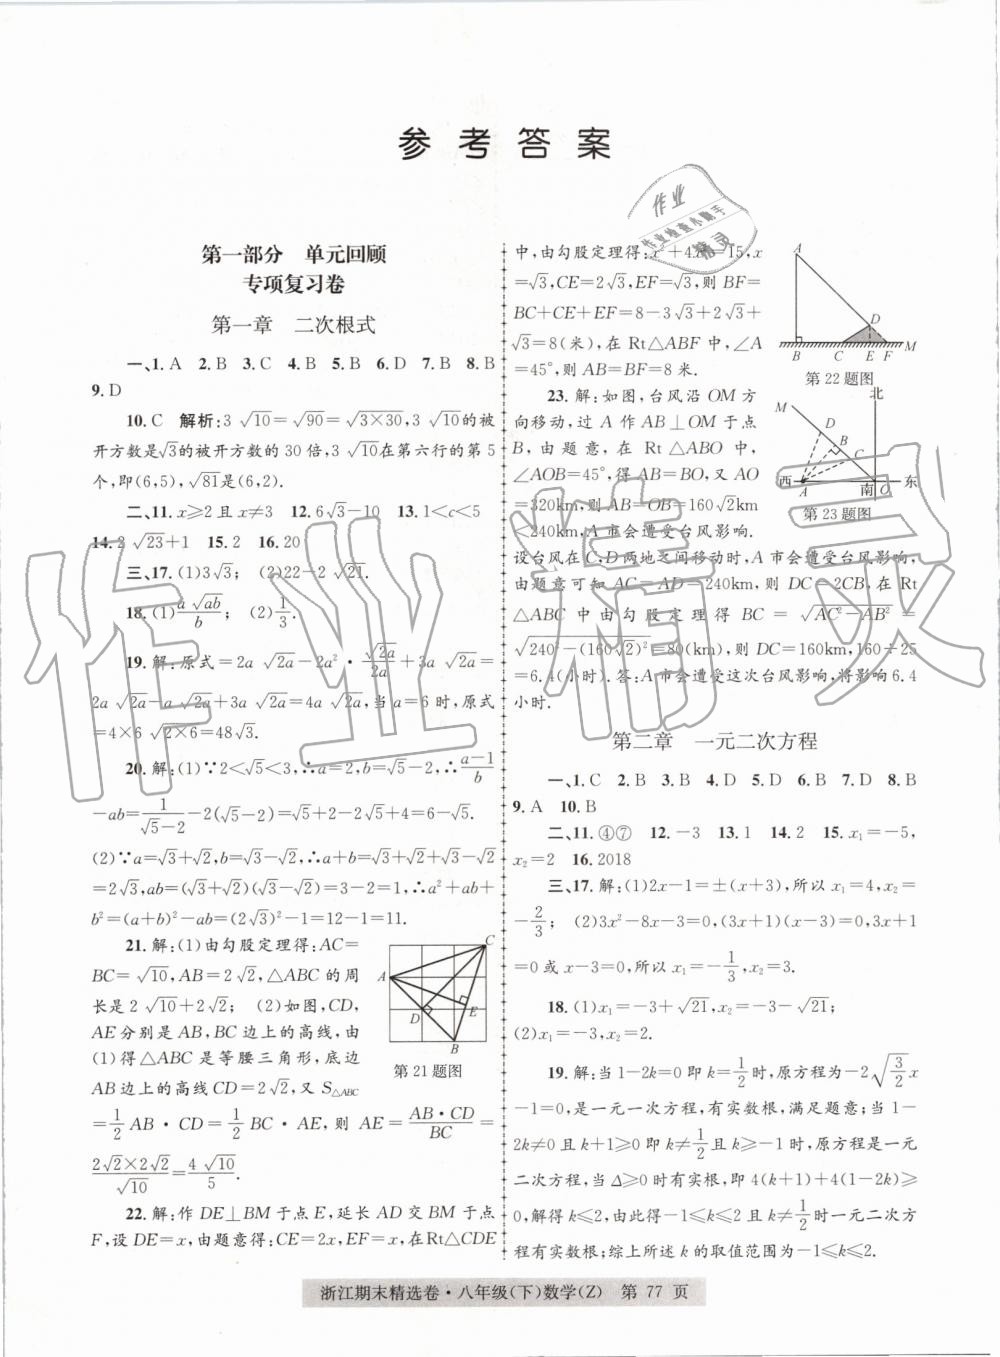 参考答案
第一部分 单元回顾
专项复习卷
第一章 二次根式
一、1. A 2. B 3. C 4. B 5. B 6. D 7. B 8. B
9. D
10. C 解析:3√10=√90=√(3×30),3√10的被
开方数是√3的被开方数的 30 倍,3√10在第六行的第 5
个,即(6,5),√81是(6,2).
二、11. x≥2 且 x≠3 12. 6√3-10 13. 1<c<5
14. 2√23+1 15. 2 16. 20
三、17. (1)3√3; (2)22-2√21.
18. (1)a√ab/b; (2)1/3.
19. 解:原式=2a√2a-2a²·√2a/2a+3a√2a=
2a√2a-a√2a+3a√2a=4a√2a,当 a=6 时,原式
=4×6√2×6=48√3.
20. 解:(1)∵2<√5<3,∴a=2,b=√5-2,∴(a-1)/b
-ab=1/(√5-2)-2(√5-2)=√5+2-2√5+4=6-√5.
(2)∵a=√3+√2,b=√3-√2,∴a+b=√3+√2+√3-√2
=2√3,ab=(√3+√2)(√3-√2)=3-2=1,∴a²+ab+
b²=(a+b)²-ab=(2√3)²-1=12-1=11.
21. 解:(1)由勾股定理得:AC=
BC=√10,AB=2√2,△ABC 的周
长是 2√10+2√2; (2)如图,CD,
AE 分别是 AB,BC 边上的高线,由
(1)得△ABC 是等腰三角形,底边
AB 边上的高线 CD=2√2,又 S△ABC
=1/2 AB·CD=1/2 BC·AE,则 AE=AB·CD/BC=
2√2×2√2/√10=4√10/5.
A
C
D
E
B
第 21 题图
22. 解:作 DE⊥BM 于点 E,延长 AD 交 BM 于点
F,设 DE=x,由题意得:CE=2x,EF=x,在Rt△CDE
中,由勾股定理得:x²+4x²=15,x
=√3,CE=2√3,EF=√3,则 BF=
BC+CE+EF=8-3√3+2√3+
√3=8(米),在 Rt△ABF 中,∠A
=45°,则 AB=BF=8米.
A
D
B C E F M
第 22 题图
23. 解:如图,台风沿 OM 方
向移动,过 A 作 AB⊥OM 于点
B,由题意,在 Rt△ABO 中,
∠AOB=45°,得 AB=BO,又 AO
=320km,则 AB=OB=160√2km
<240km,A 市会遭受台风影响.
设台风在 C,D 两地之间移动时,A 市会遭受台风影响,
由题意可知 AC=AD=240km,则 DC=2CB,在 Rt
△ABC 中由勾股定理得 BC=√(AC²-AB²)=
√(240²-(160√2)²)=80(km),则 DC=160km,160÷25
=6.4(小时).答:A 市会遭受这次台风影响,将影响 6.4
小时.
北
M
D
B
C
西 A 南 O 东
第 23 题图
第二章 一元二次方程
一、1. C 2. B 3. B 4. D 5. D 6. B 7. D 8. B
9. A 10. B
二、11. ④⑦ 12. -3 13. 1 14. 2 15. x₁=-5,
x₂=2 16. 2018
三、17. 解:(1)2x-1=±(x+3),所以 x₁=4,x₂=
-2/3; (2)3x²-8x-3=0,(3x+1)(x-3)=0,3x+1
=0 或 x-3=0,所以 x₁=-1/3,x₂=3.
18. (1)x₁=-3+√21,x₂=-3-√21;
(2)x₁=-3,x₂=2.
19. 解:当 1-2k=0 即 k=1/2时,原方程为-2√(3/2)x
-1=0,是一元一次方程,有实数根,满足题意;当 1-
2k≠0 且 k+1≥0 即 k≠1/2且 k≥-1 时,原方程是一元
二次方程,当 Δ≥0 时有实根,即 4(k+1)+4(1-2k)≥
0,解得 k≤2,由此得-1≤k≤2 且 k≠1/2时一元二次方
程有实数根;综上所述 k 的取值范围为-1≤k≤2.
浙江期末精选卷·八年级(下)数学(Z) 第 77 页
作业
作业检查小助手
精灵
作业精灵